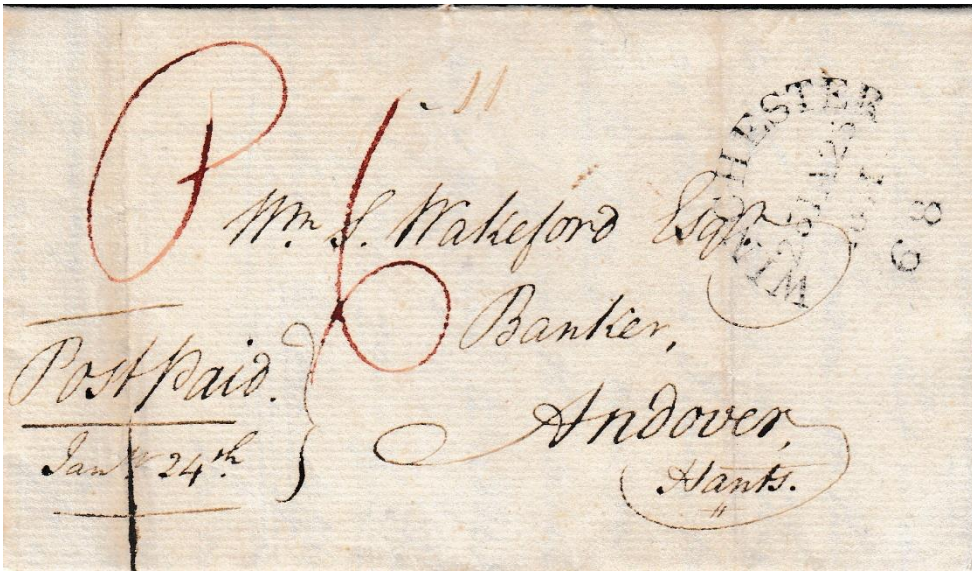 11
P 6
WINCHESTER
68
Wm. S. Wakeford Esqr.
Banker,
Andover,
Hants.
Post Paid.
Jany. 24th